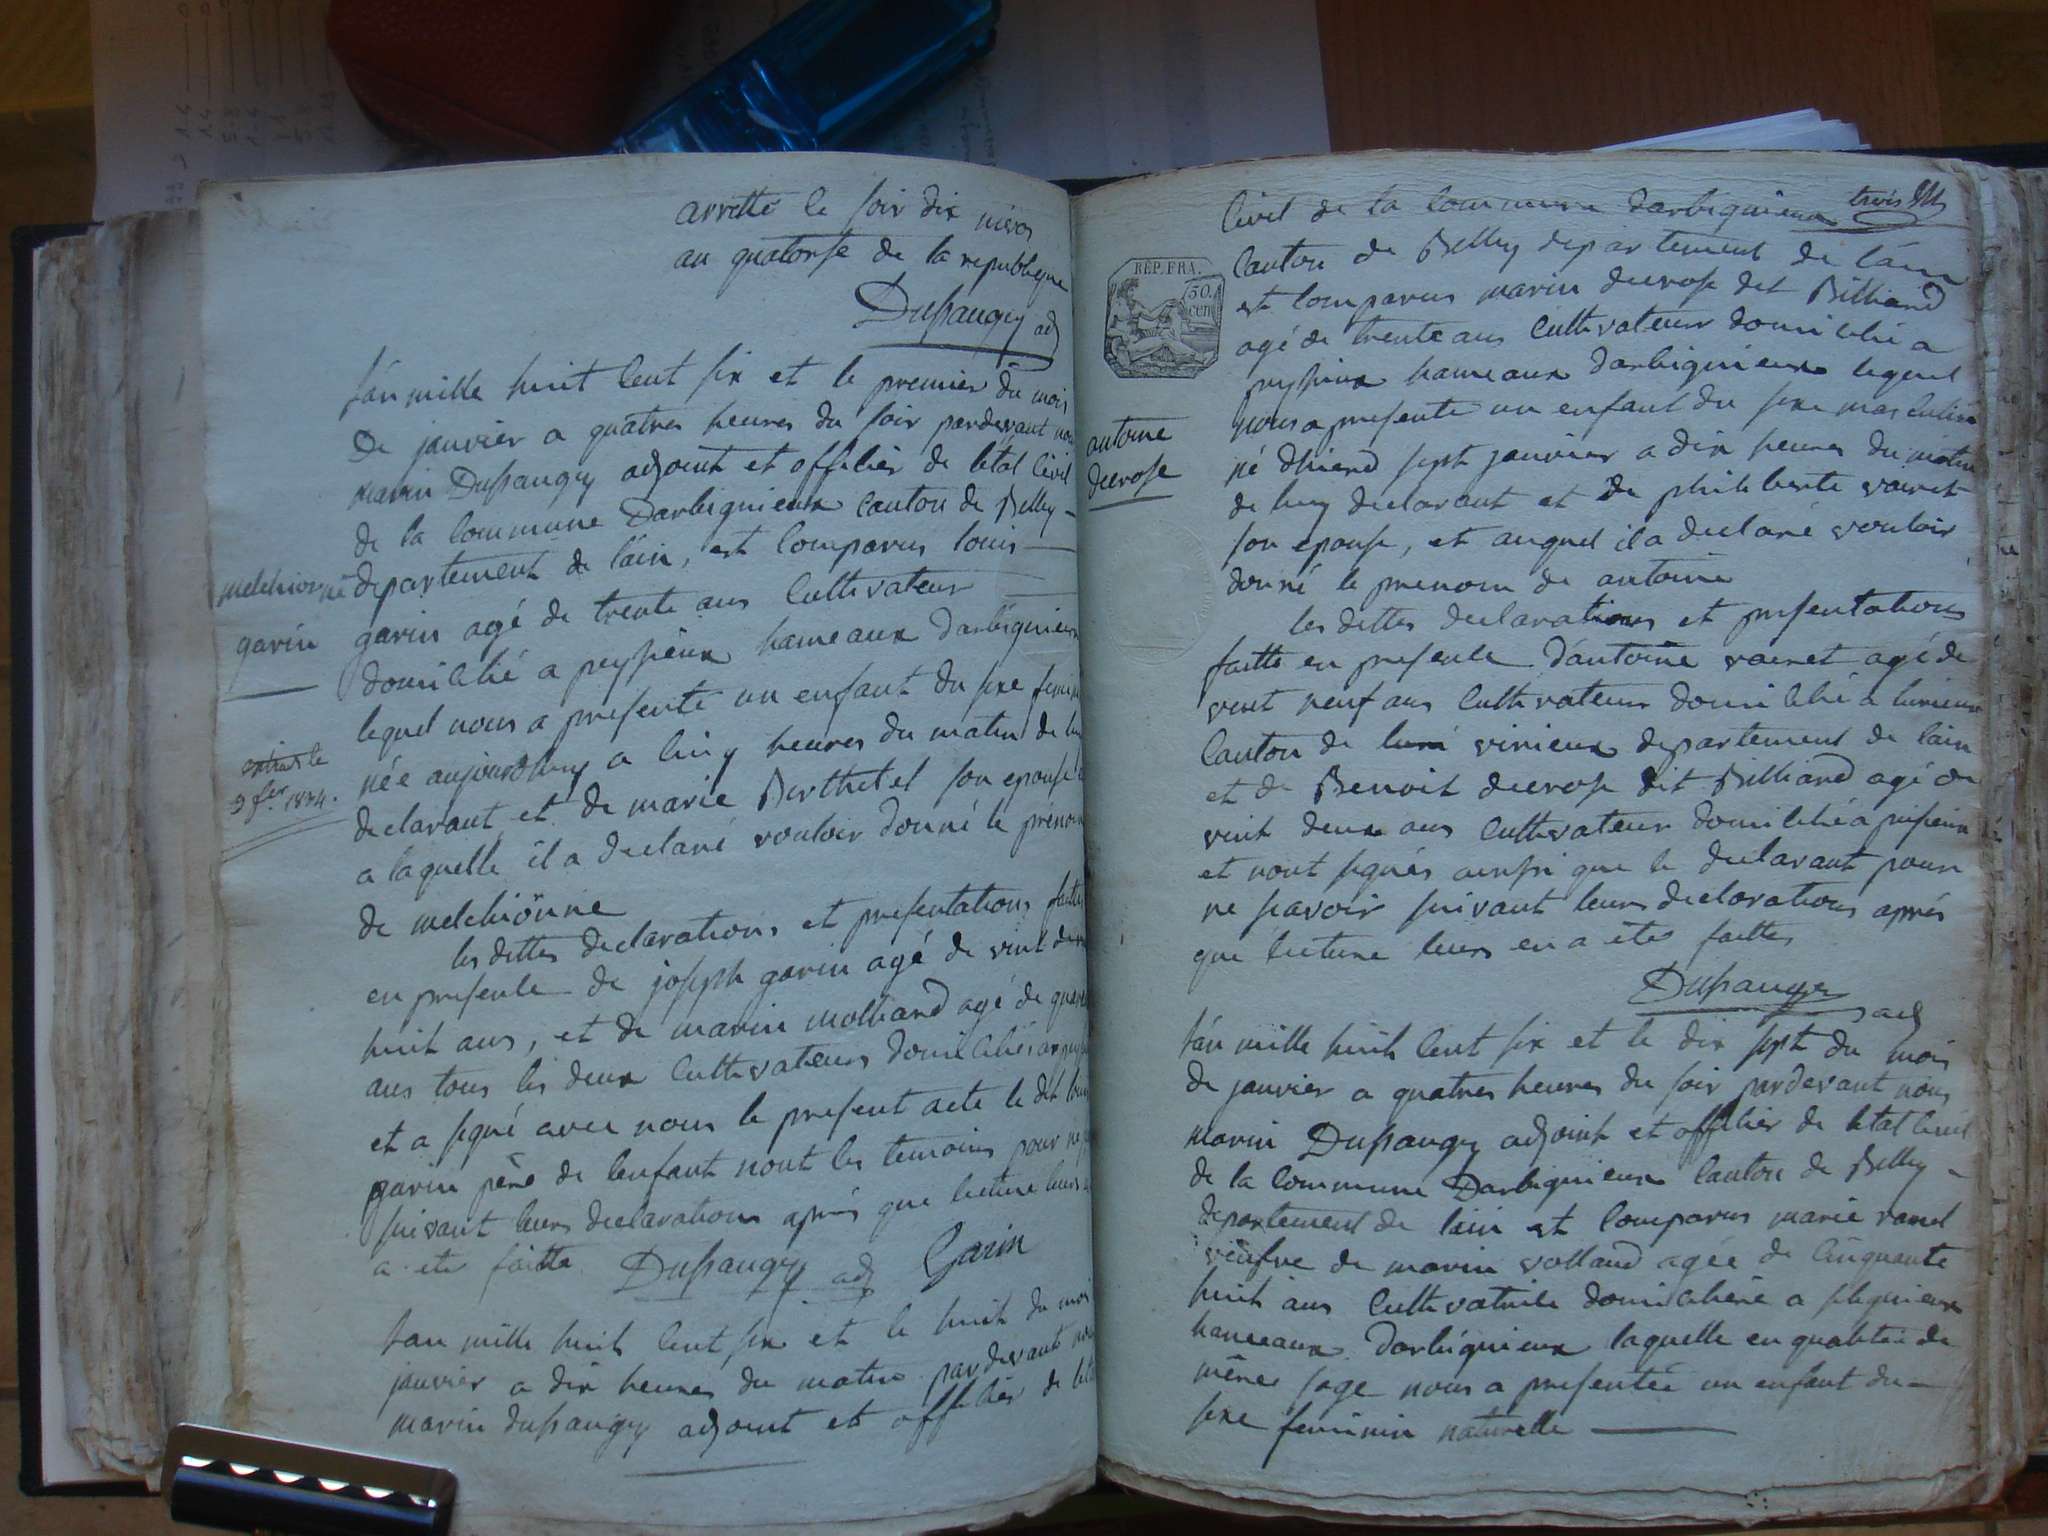 arretté le soir dix nivos
au quatorse de la republique
Dussaugey adj
Lán mille huit cent six et le premier du mois
de janvier a quatres heures du soir pardevant nous
marin Dussaugey adjoint et officier de létat civil
de la commune Darbignieux canton de Belley
departement de láin, est comparus louis
melchionne
garin
garin agé de trente ans cultivateur
domicilié a peyssieux hameaux darbignieux
lequel nous a presenté un enfant du sexe femi
née aujourdhuy a cinq heures du matin de lui
extrait le
9 fer 1824.
declarant et de marie Berthetel son epouse
a laquelle il a declaré vouloir donné le prénom
de melchiönne
les dittes declarations et presentations faites
en presence de joseph garin agé de vint
huit ans, et de marin molliand agé de quara
ans tous les deux cultivateurs domiciliés a
et a signé avec nous le present acte le dit louis
garin père de lenfant nont les temoins pour ne
suivant leurs declarations après que lecture leurs
a ete faitte Dussaugey adj Garin
Lan mille huit cent six et le huit du moi
janvier a dix heures du matin pardevant nou
marin dussaugey adjoint et officier de léta
trois
civil de la commune darbignieux
canton de Belley departement de láin
REP. FRA.
50.
cen
est comparus marin decrose dit Billiand
agé de trente ans cultivateur domicilié a
peyssieux hameaux darbignieux lequel
nous a presenté un enfant du sexe masculin
antoine
decrose
né dhierd sept janvier a dix heures du matin
de luy declarant et de philiberte vairet
son epouse, et auquel il a declaré vouloir
donné le prenom de antoine
les dittes declarations et presentations
faitte en presence dántoine vairet agé de
vint neuf ans cultivateur domicilié a
canton de virieux departement de lain
et de Benoit decrose dit Billiand agé de
vint deux ans cultivateur domicilié a
et nont signés ainsi que le declarant pour
ne savoir suivant leurs declarations après
que lecture leurs en a ete faittes
Dussaugey
adj
Lán mille huit cent six et le dix sept du mois
de janvier a quatres heures du soir pardevant nous
marin Dussaugey adjoint et officier de létat civil
de la commune Darbignieux canton de Belley
departement de láin est comparus marie
veufve de marin volland agée de cinquante
huit ans cultivatrice domiciliéé a
hameaux darbignieux laquelle en qualitée de
mère sage nous a presentée un enfant du
sexe feminin naturelle